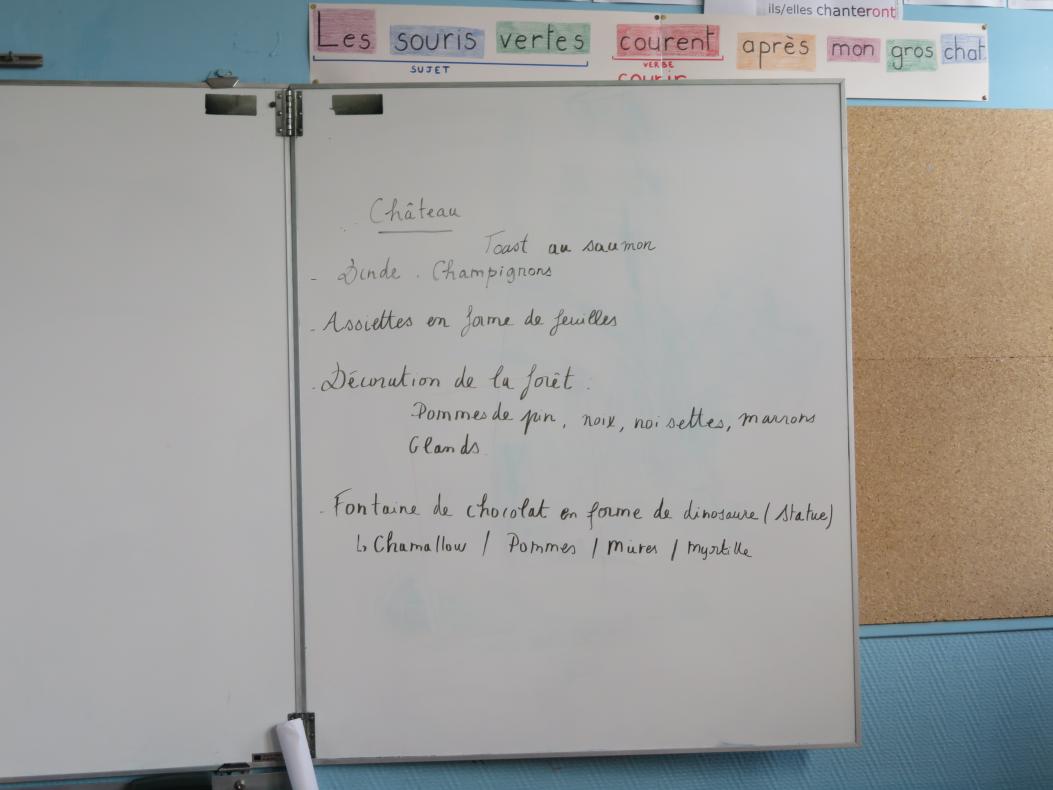 ils/elles chanteront
Les souris vertes courent après mon gros chat
SUJET VERBE
courir
Château
Toast au saumon
- Dinde . Champignons
- Assiettes en forme de feuilles
- Décoration de la forêt :
Pommes de pin, noix, noisettes, marrons
Glands
- Fontaine de chocolat en forme de dinosaure (statue)
↳ Chamallow / Pommes / Mûres / Myrtille